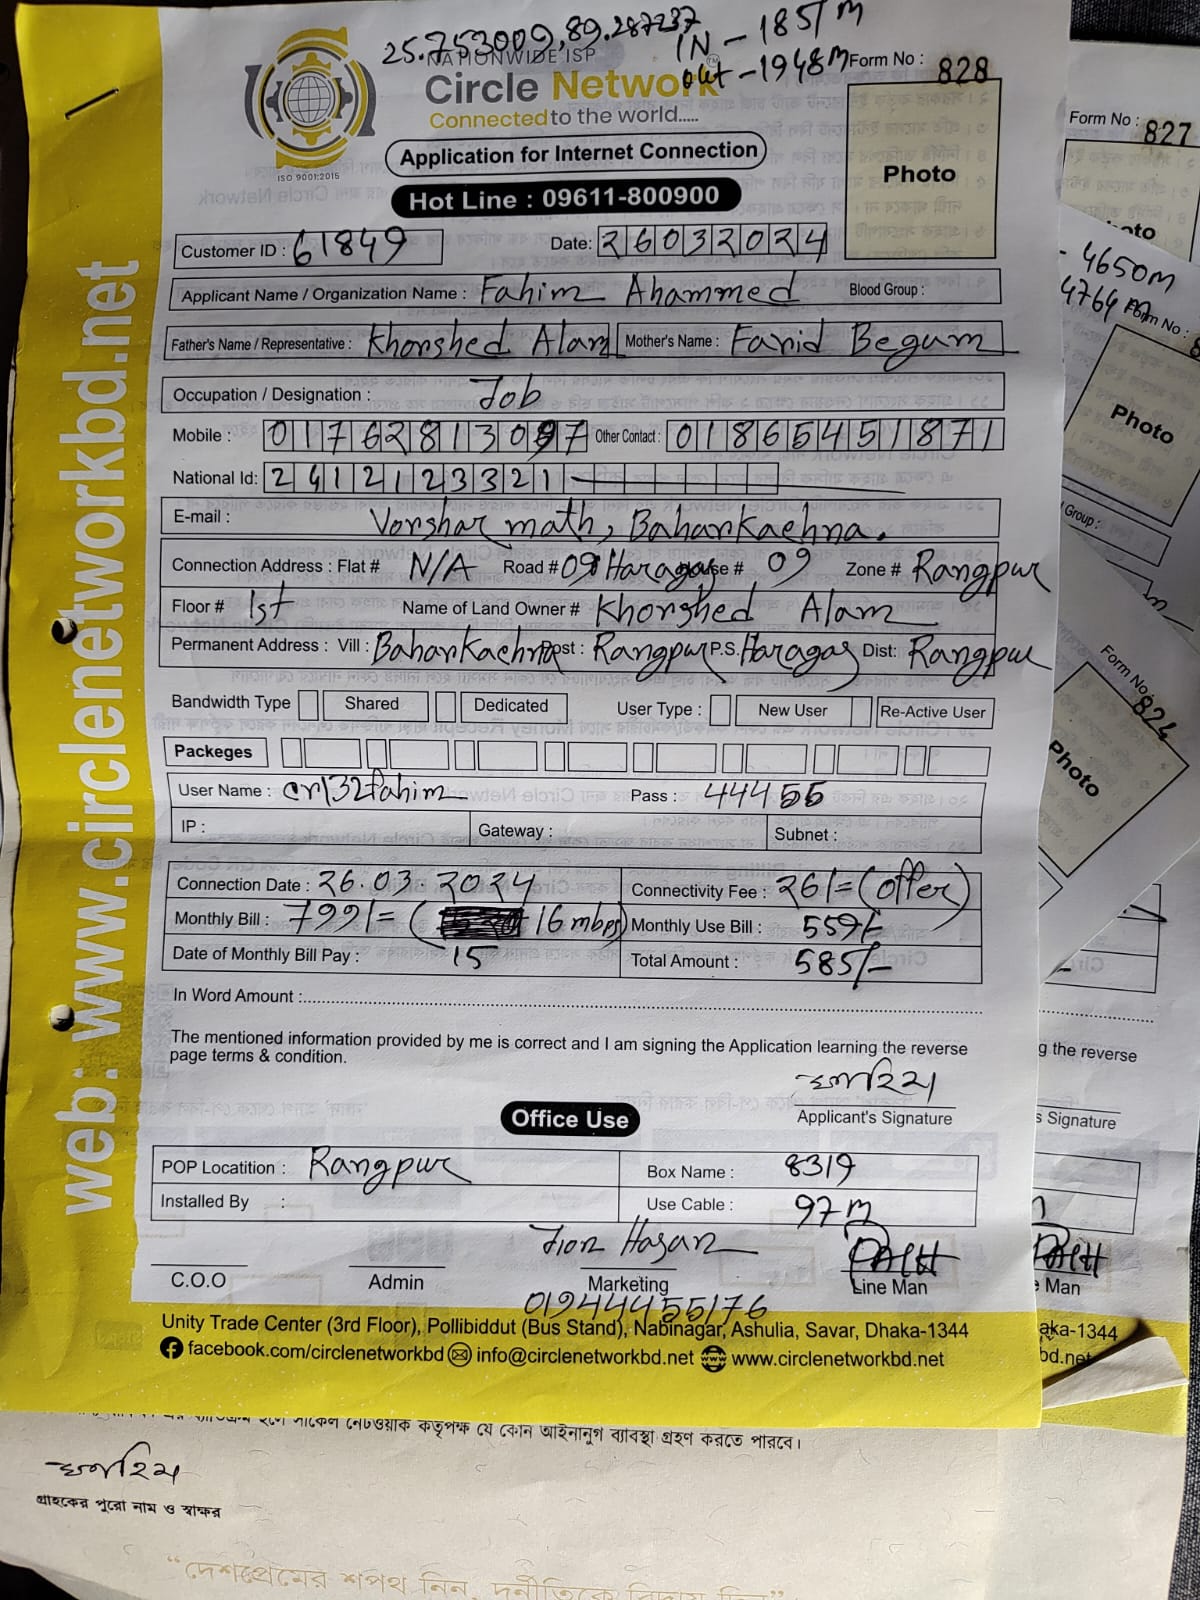 25.753009,89.287237
IN - 1851m
out - 1948m
NATIONWIDE ISP
Circle Network
Connected to the world.....
ISO 9001:2015
Form No : 828
Photo
Application for Internet Connection
Hot Line : 09611-800900
Customer ID : 61849 Date: 26032024
Applicant Name / Organization Name : Fahim Ahammed Blood Group :
Father's Name / Representative : Khorshed Alam Mother's Name : Farid Begum
Occupation / Designation : Job
Mobile : 01762813097 Other Contact : 01865451871
National Id: 2412123321
E-mail : Vorshar math, Baharkachna.
Connection Address : Flat # N/A Road # 09 Haragas House # 09 Zone # Rangpur
Floor # 1st Name of Land Owner # Khorshed Alam
Permanent Address : Vill : Baharkachna Post : Rangpur P.S. Haragas Dist: Rangpur
Bandwidth Type Shared Dedicated User Type : New User Re-Active User
Packeges
User Name : crl32fahim Pass : 44455
IP : Gateway : Subnet :
Connection Date : 26.03.2024 Connectivity Fee : 26/= (offer)
Monthly Bill : 799/= ( 16 mbps) Monthly Use Bill : 559/-
Date of Monthly Bill Pay : 15 Total Amount : 585/-
In Word Amount :
The mentioned information provided by me is correct and I am signing the Application learning the reverse
page terms & condition.
ফাহিম
Applicant's Signature
Office Use
POP Locatition : Rangpur Box Name : 8319
Installed By : Use Cable : 97m
Jion Hasan
C.O.O Admin Marketing Line Man
01944455176
Unity Trade Center (3rd Floor), Pollibiddut (Bus Stand), Nabinagar, Ashulia, Savar, Dhaka-1344
facebook.com/circlenetworkbd info@circlenetworkbd.net www.circlenetworkbd.net
web: www.circlenetworkbd.net
Form No : 827
- 4650m
4764m
Form No :
Photo
Group :
Form No : 824
Photo
g the reverse
s Signature
e Man
aka-1344
bd.net
সার্কেল নেটওয়াক কতৃপক্ষ যে কোন আইনানুগ ব্যাবস্থা গ্রহণ করতে পারবে।
ফাহিম
গ্রাহকের পুরো নাম ও স্বাক্ষর
“দেশপ্রেমের শপথ নিন, দুর্নীতিকে বিদায় দিন”